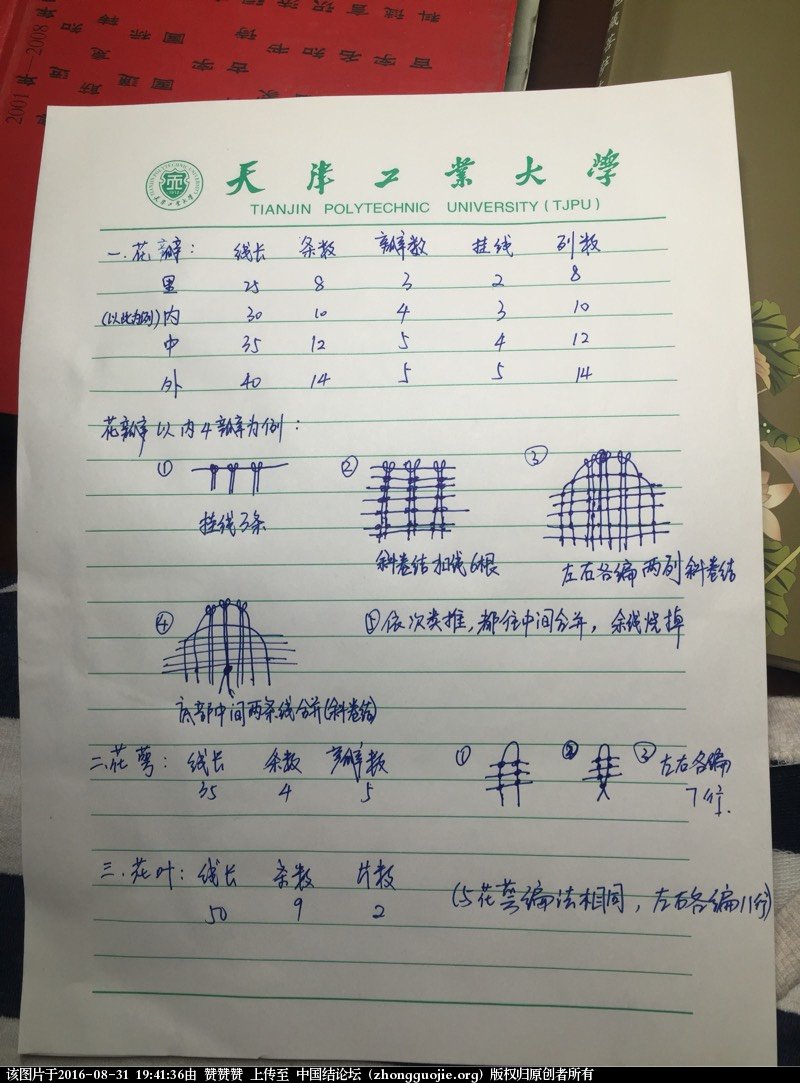 2001年—2008年
天津工业大学
TIANJIN POLYTECHNIC UNIVERSITY (TJPU)
一.花瓣: 线长 条数 瓣数 挂线 列数
里 25 8 3 2 8
(以此为例)内 30 10 4 3 10
中 35 12 5 4 12
外 40 14 5 5 14
花瓣以内4瓣为例:
① ② ③
挂线3条
斜卷结扣线6根
左右各编两列斜卷结
④
⑤依次类推,都往中间合并,余线烧掉
底部中间两条线合并(斜卷结)
二.花萼: 线长 条数 瓣数 ① ② ③左右各编
35 4 5 7行.
三.花叶: 线长 条数 片数
50 9 2 (与花萼编法相同,左右各编11行)
该图片于2016-08-31 19:41:36由 赞赞赞 上传至 中国结论坛 (zhongguojie.org) 版权归原创者所有